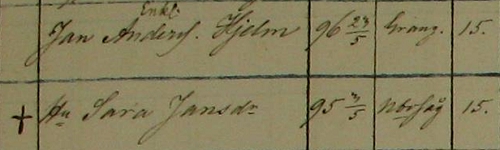 Enkl.
Jan Anders. Hjelm 96 23/5 Grang. 15.
+ Hu Sara Jansdr 95 3/5 15.